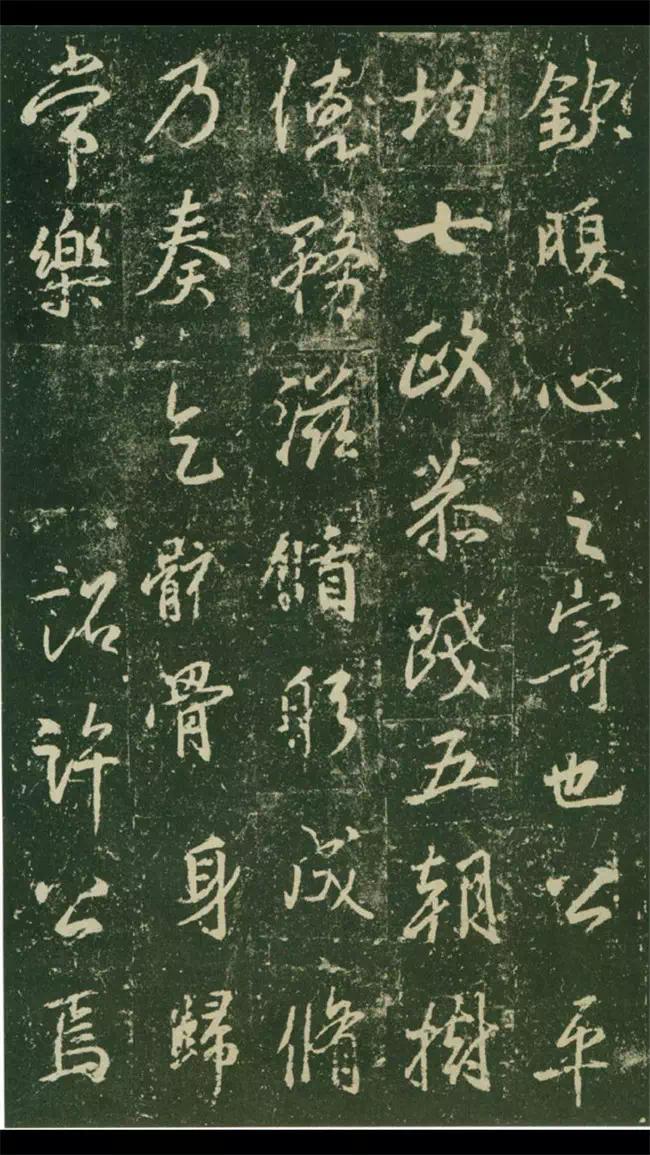 欽腹心之寄也公平
均七政恭踐五朝樹
德務滋躬咸脩
乃奏乞骸骨身歸
常樂 詔許公焉